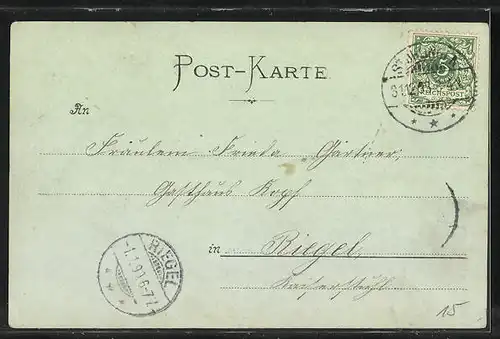 POST-KARTE
5
REICHSPOST
31.12.
An
Fräulein Frieda Gärtner,
Gasthaus Kopf
in Riegel,
Kaiserstuhl.
RIEGEL
1.1.99.6-7
15